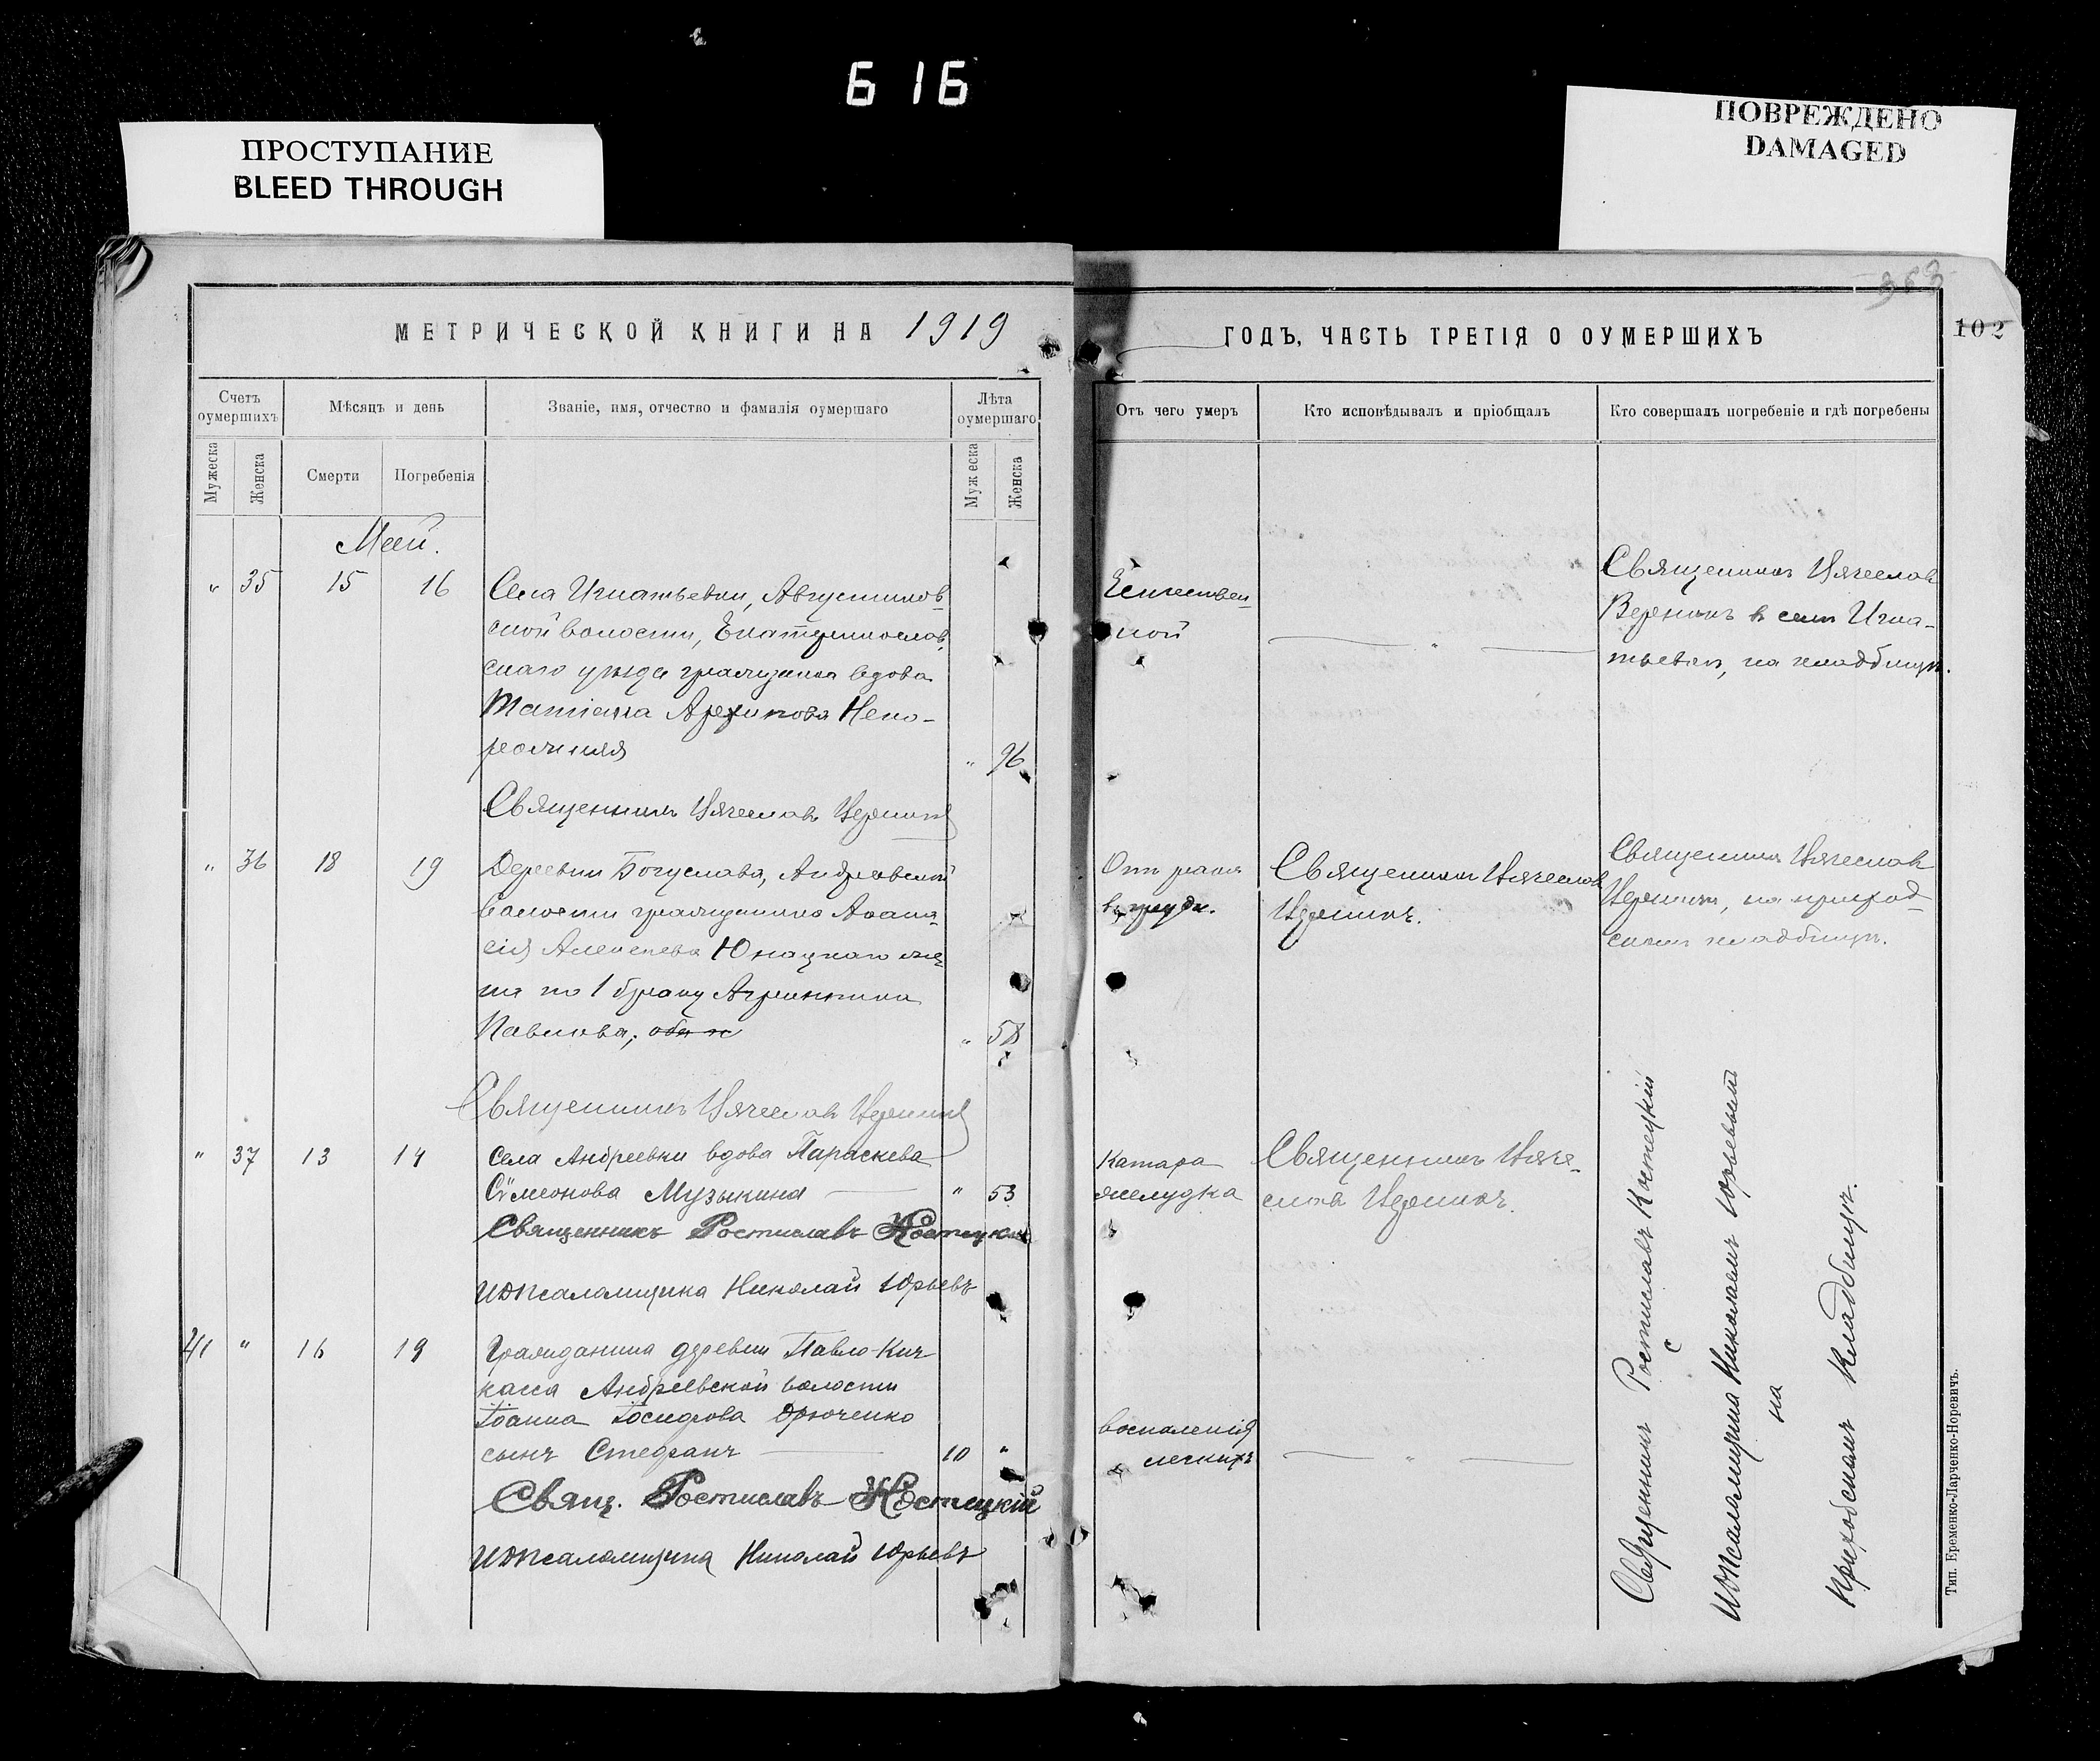 616
ПРОСТУПАНИЕ
BLEED THROUGH
ПОВРЕЖДЕНО
DAMAGED
363
102
МЕТРИЧЕСКОЙ КНИГИ НА 1919
ГОДЪ, ЧАСТЬ ТРЕТІЯ О ОУМЕРШИХЪ
Счетъ оумершихъ
Мѣсяцъ и день
Званіе, имя, отчество и фамилія оумершаго
Лѣта оумершаго
Мужеска
Женска
Смерти
Погребенія
Мужеска
Женска
Отъ чего умеръ
Кто исповѣдывалъ и пріобщалъ
Кто совершалъ погребеніе и гдѣ погребены
Май.
" 35 15 16
Села Игнатьевки, Августинов-
ской волости, Екатеринослав.
скаго уѣзда гражданка вдова
Татіана Архипова Непо-
рожняя
" 96
Естествен-
ной
"
Священникъ Вячеслав
Верникъ в селѣ Игна-
тьевкѣ, на кладбищѣ.
Священникъ Вячеславъ
" 36 18 19
Деревни Богуслава, Андреевской
волости гражданина Аѳана-
сія Алексѣева Юнацкаго же-
на по 1 браку Агриппина
Павлова; оба ж
" 58
От раны
въ груди.
Священникъ Вячеслав
Священникъ Вячеслав
на приход-
скомъ кладбищѣ.
Священникъ Вячеславъ
" 37 13 14
Села Андреевки вдова Параскева
Сѵмеонова Музыкина
" 53
Катара
желудка
Священникъ Вяче-
слав
Священникъ Ростиславъ Костецкій
ИДПсаломщика Николай Юрьевъ
41 " 16 19
Гражданина деревни Павло-Кич-
касса Андреевской волости
Іоанна Іосифова Дрюченко
сынъ Стефанъ
10 "
воспаленія
легкихъ
"
Свящ. Ростиславъ Костецкій
ИДПсаломщика Николай Юрьевъ
Священникъ Ростиславъ Костецкій
с
ИДПсаломщика Николаемъ Юрьевымъ
на
приходскомъ кладбищѣ.
Тип. Еременко-Ларченко-Норевичъ.